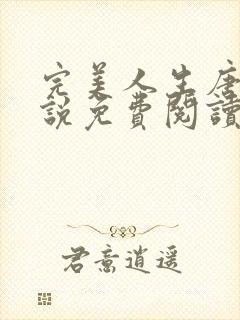 完美人生唐
說免費閱讀
君意逍遙